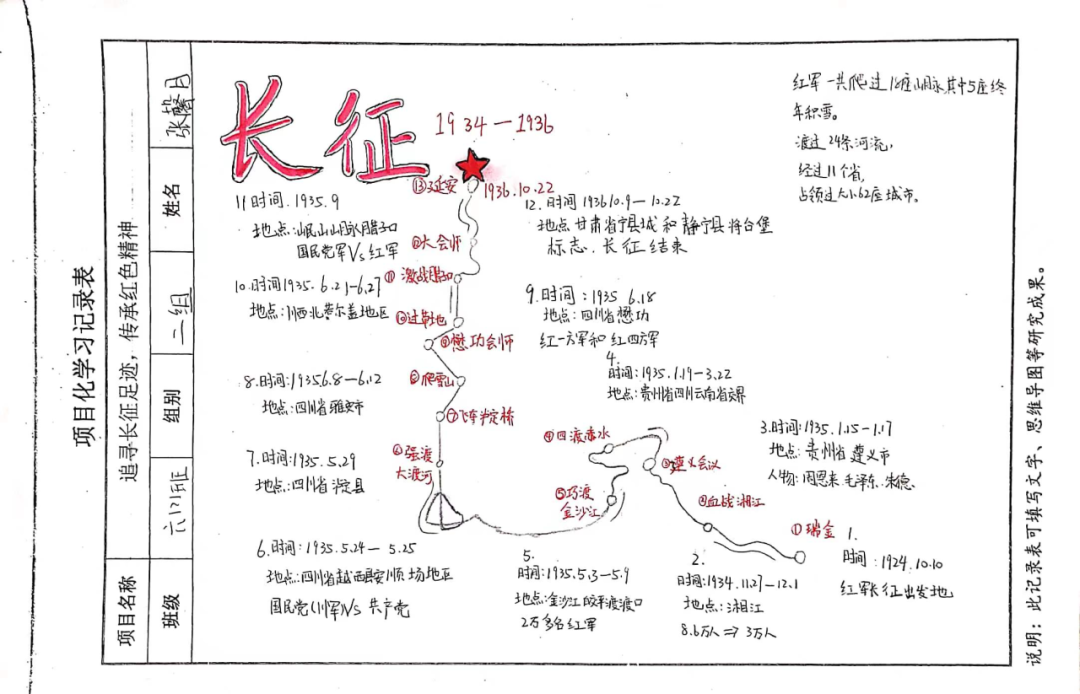 项目化学习记录表
项目名称
追寻长征足迹，传承红色精神
班级
六(2)班
组别
二组
姓名
张馨月
长征
1934—1936
红军一共爬过18座山脉其中5座终
年积雪。
渡过24条河流，
经过11个省，
占领过大小62座城市。
⑬延安
1936.10.22
11时间.1935.9
地点:岷山山脉腊子口
国民党军Vs红军
12.时间 1936 10.9—10.22
地点 甘肃省宁县城和静宁县将台堡
标志.长征结束
⑫大会师
⑪激战腊子口
10.时间1935.6.21-6.27
地点:川西北荞尔盖地区
⑩过草地
9.时间:1935 6.18
地点:四川省懋功
红一方军和红四方军
⑨懋功会师
4.
时间:1935.1.19-3.22
地点:贵州省四川云南省交界
8.时间:1935 6.8-6.12
地点:四川省雅安市
⑧爬雪山
⑦飞夺泸定桥
3.时间:1935.1.15-1.17
地点:贵州省遵义市
人物:周恩来.毛泽东.朱德
④四渡赤水
③遵义会议
7.时间:1935.5.29
地点:四川省泸定县
⑥强渡
大渡河
⑤巧渡
金沙江
②血战湘江
①瑞金
1.
时间:1924.10.10
红军长征出发地
6.时间:1935.5.24—5.25
地点:四川省越西县安顺场地区
国民党(川军)Vs共产党
5.
时间:1935.5.3-5.9
地点:金沙江皎平渡渡口
2万多名红军
2.
时间:1934.11.27-12.1
地点:湘江
8.6万人⇒3万人
说明：此记录表可填写文字、思维导图等研究成果。